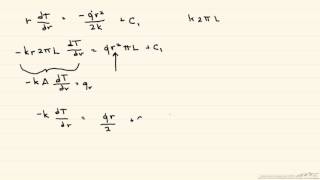 r dT/dr = -q̇r²/2k + C₁ k2πL
-kr2πL dT/dr = q̇r²πL + C₁
-kA dT/dr = qr
-k dT/dr = q̇r/2 +